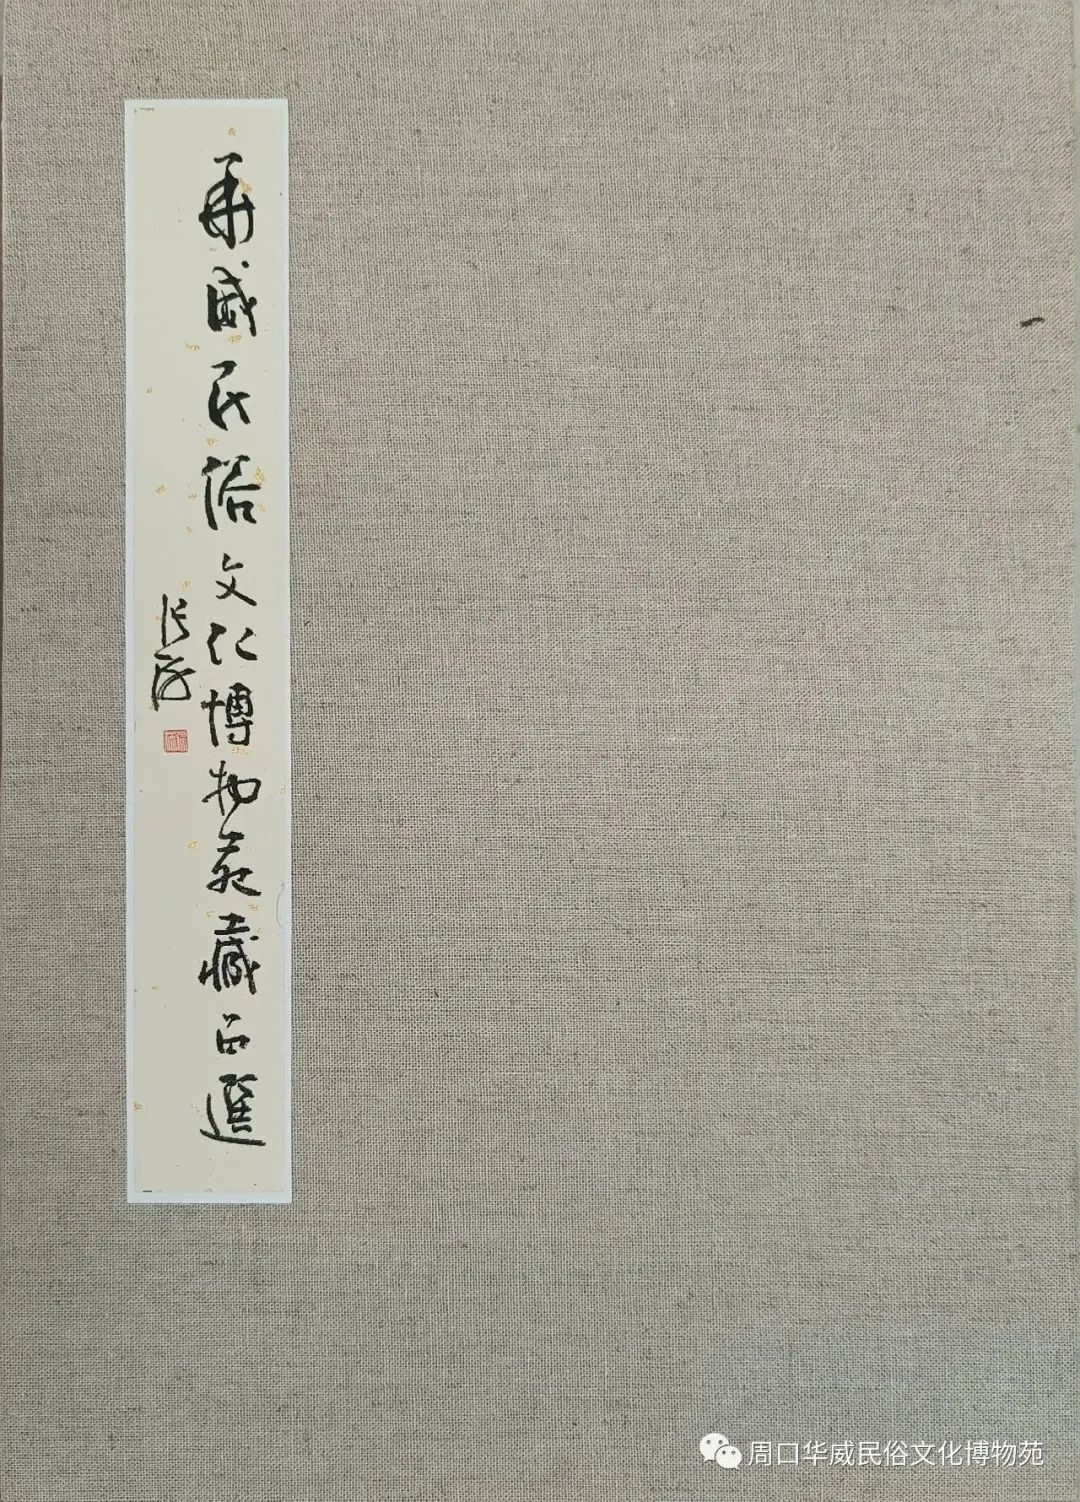 華威民俗文化博物苑藏品選
周口华威民俗文化博物苑